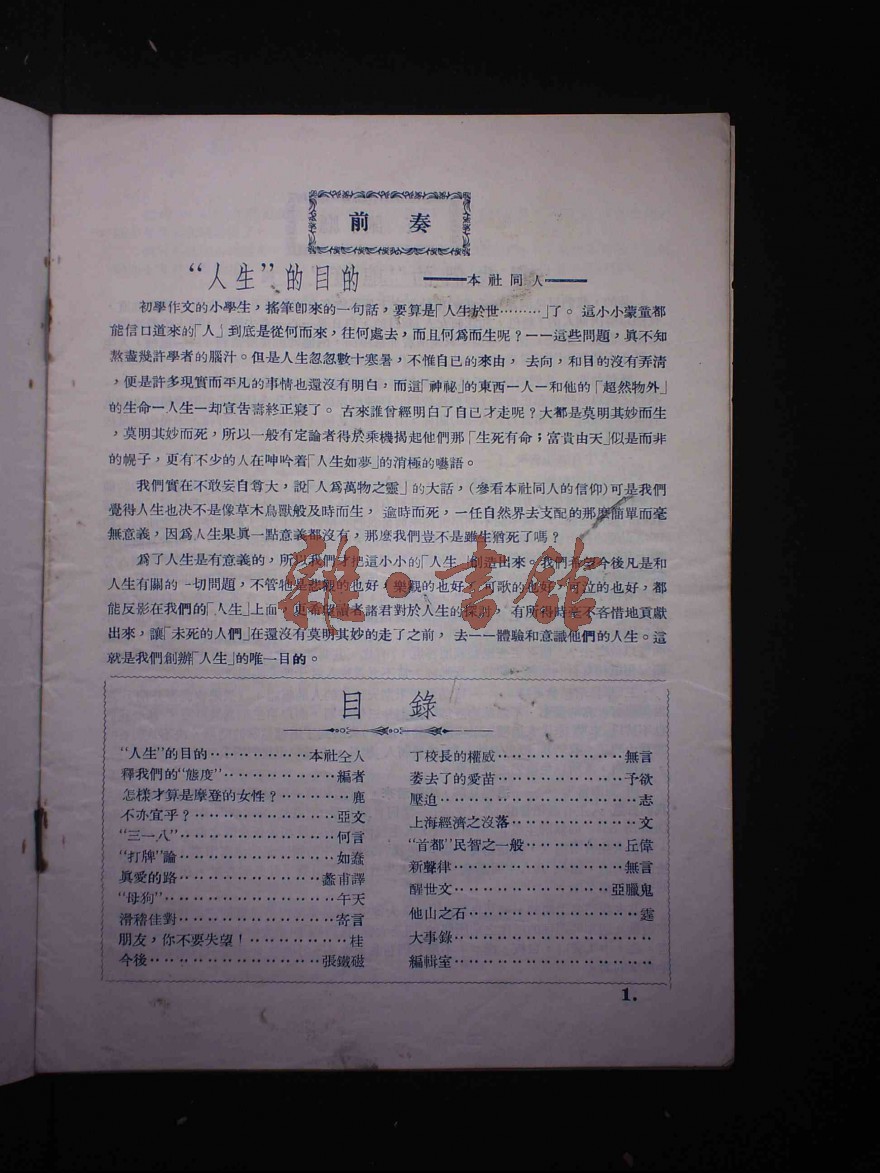 前奏
“人生”的目的 ——本社同人——
初學作文的小學生，搖筆卽來的一句話，要算是「人生於世………」了。這小小蒙童都
能信口道來的「人」到底是從何而來，往何處去，而且何爲而生呢？——這些問題，眞不知
熬盡幾許學者的腦汁。但是人生忽忽數十寒暑，不惟自已的來由，去向，和目的沒有弄清
，便是許多現實而平凡的事情也還沒有明白，而這「神祕」的東西—人—和他的「超然物外」
的生命—人生—却宣告壽終正寢了。古來誰曾經明白了自已才走呢？大都是莫明其妙而生
，莫明其妙而死，所以一般有定論者得於乘機揭起他們那「生死有命；富貴由天」似是而非
的幌子，更有不少的人在呻吟着「人生如夢」的消極的囈語。
我們實在不敢妄自尊大，說「人爲萬物之靈」的大話，(參看本社同人的信仰)可是我們
覺得人生也决不是像草木鳥獸般及時而生，逾時而死，一任自然界去支配的那麽簡單而毫
無意義，因爲人生果眞一點意義都沒有，那麽我們豈不是雖生猶死了嗎？
爲了人生是有意義的，所以我們才把這小小的「人生」創造出來。我們希望今後凡是和
人生有關的一切問題，不管牠是悲觀的也好，樂觀的也好，可歌的也好，可泣的也好，都
能反影在我們的「人生」上面，更希望讀者諸君對於人生的探討，有所得時毫不吝惜地貢獻
出來，讓「未死的人們」在還沒有莫明其妙的走了之前，去——體驗和意識他們的人生。這
就是我們創辦「人生」的唯一目的。
目錄
“人生”的目的…………本社仝人
釋我們的“態度”…………編者
怎樣才算是摩登的女性？………鹿
不亦宜乎？…………亞文
“三一八”…………何言
“打牌”論…………如蠢
眞愛的路…………蠡甫譯
“母狗”…………午天
滑稽佳對…………寄言
朋友，你不要失望！…………桂
今後…………張鐵磁
丁校長的權威…………無言
萎去了的愛苗…………予欲
壓迫…………志
上海經濟之沒落…………文
“首都”民智之一般…………丘偉
新聲律…………無言
醒世文…………亞臘鬼
他山之石…………霆
大事錄…………
編輯室…………
1.
雜·書館